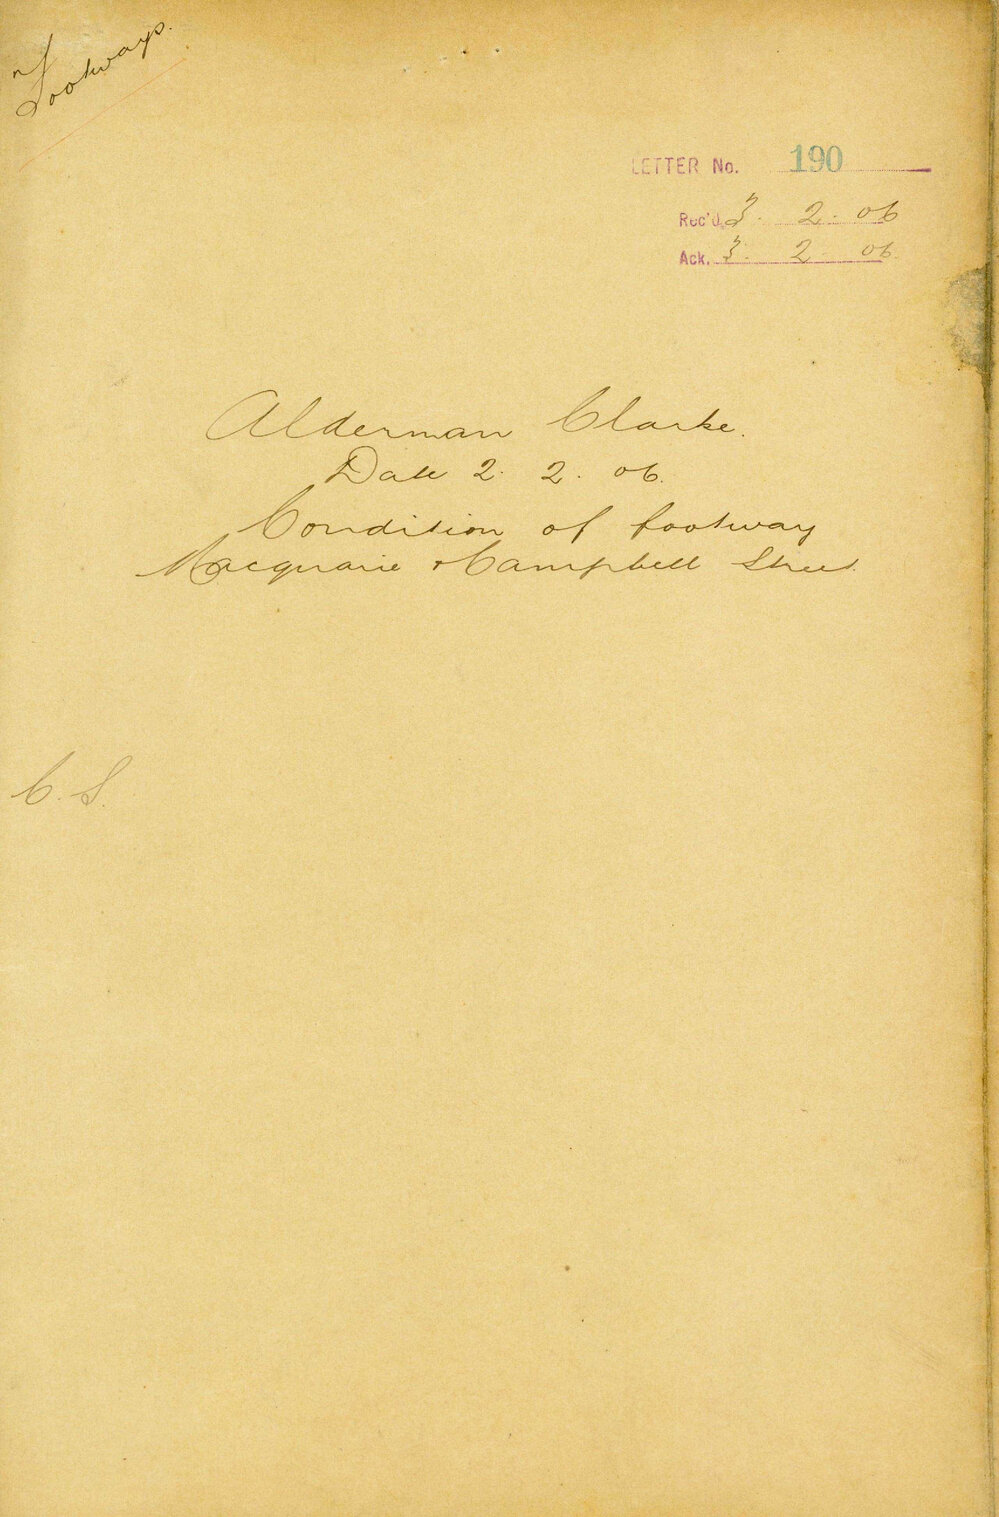 Footways.
LETTER No. 190
Rec'd. 3. 2. 06
Ack. 3. 2 06.
Alderman Clarke.
Date 2. 2. 06.
Condition of footway
Macquarie & Campbell Street.
C. S.